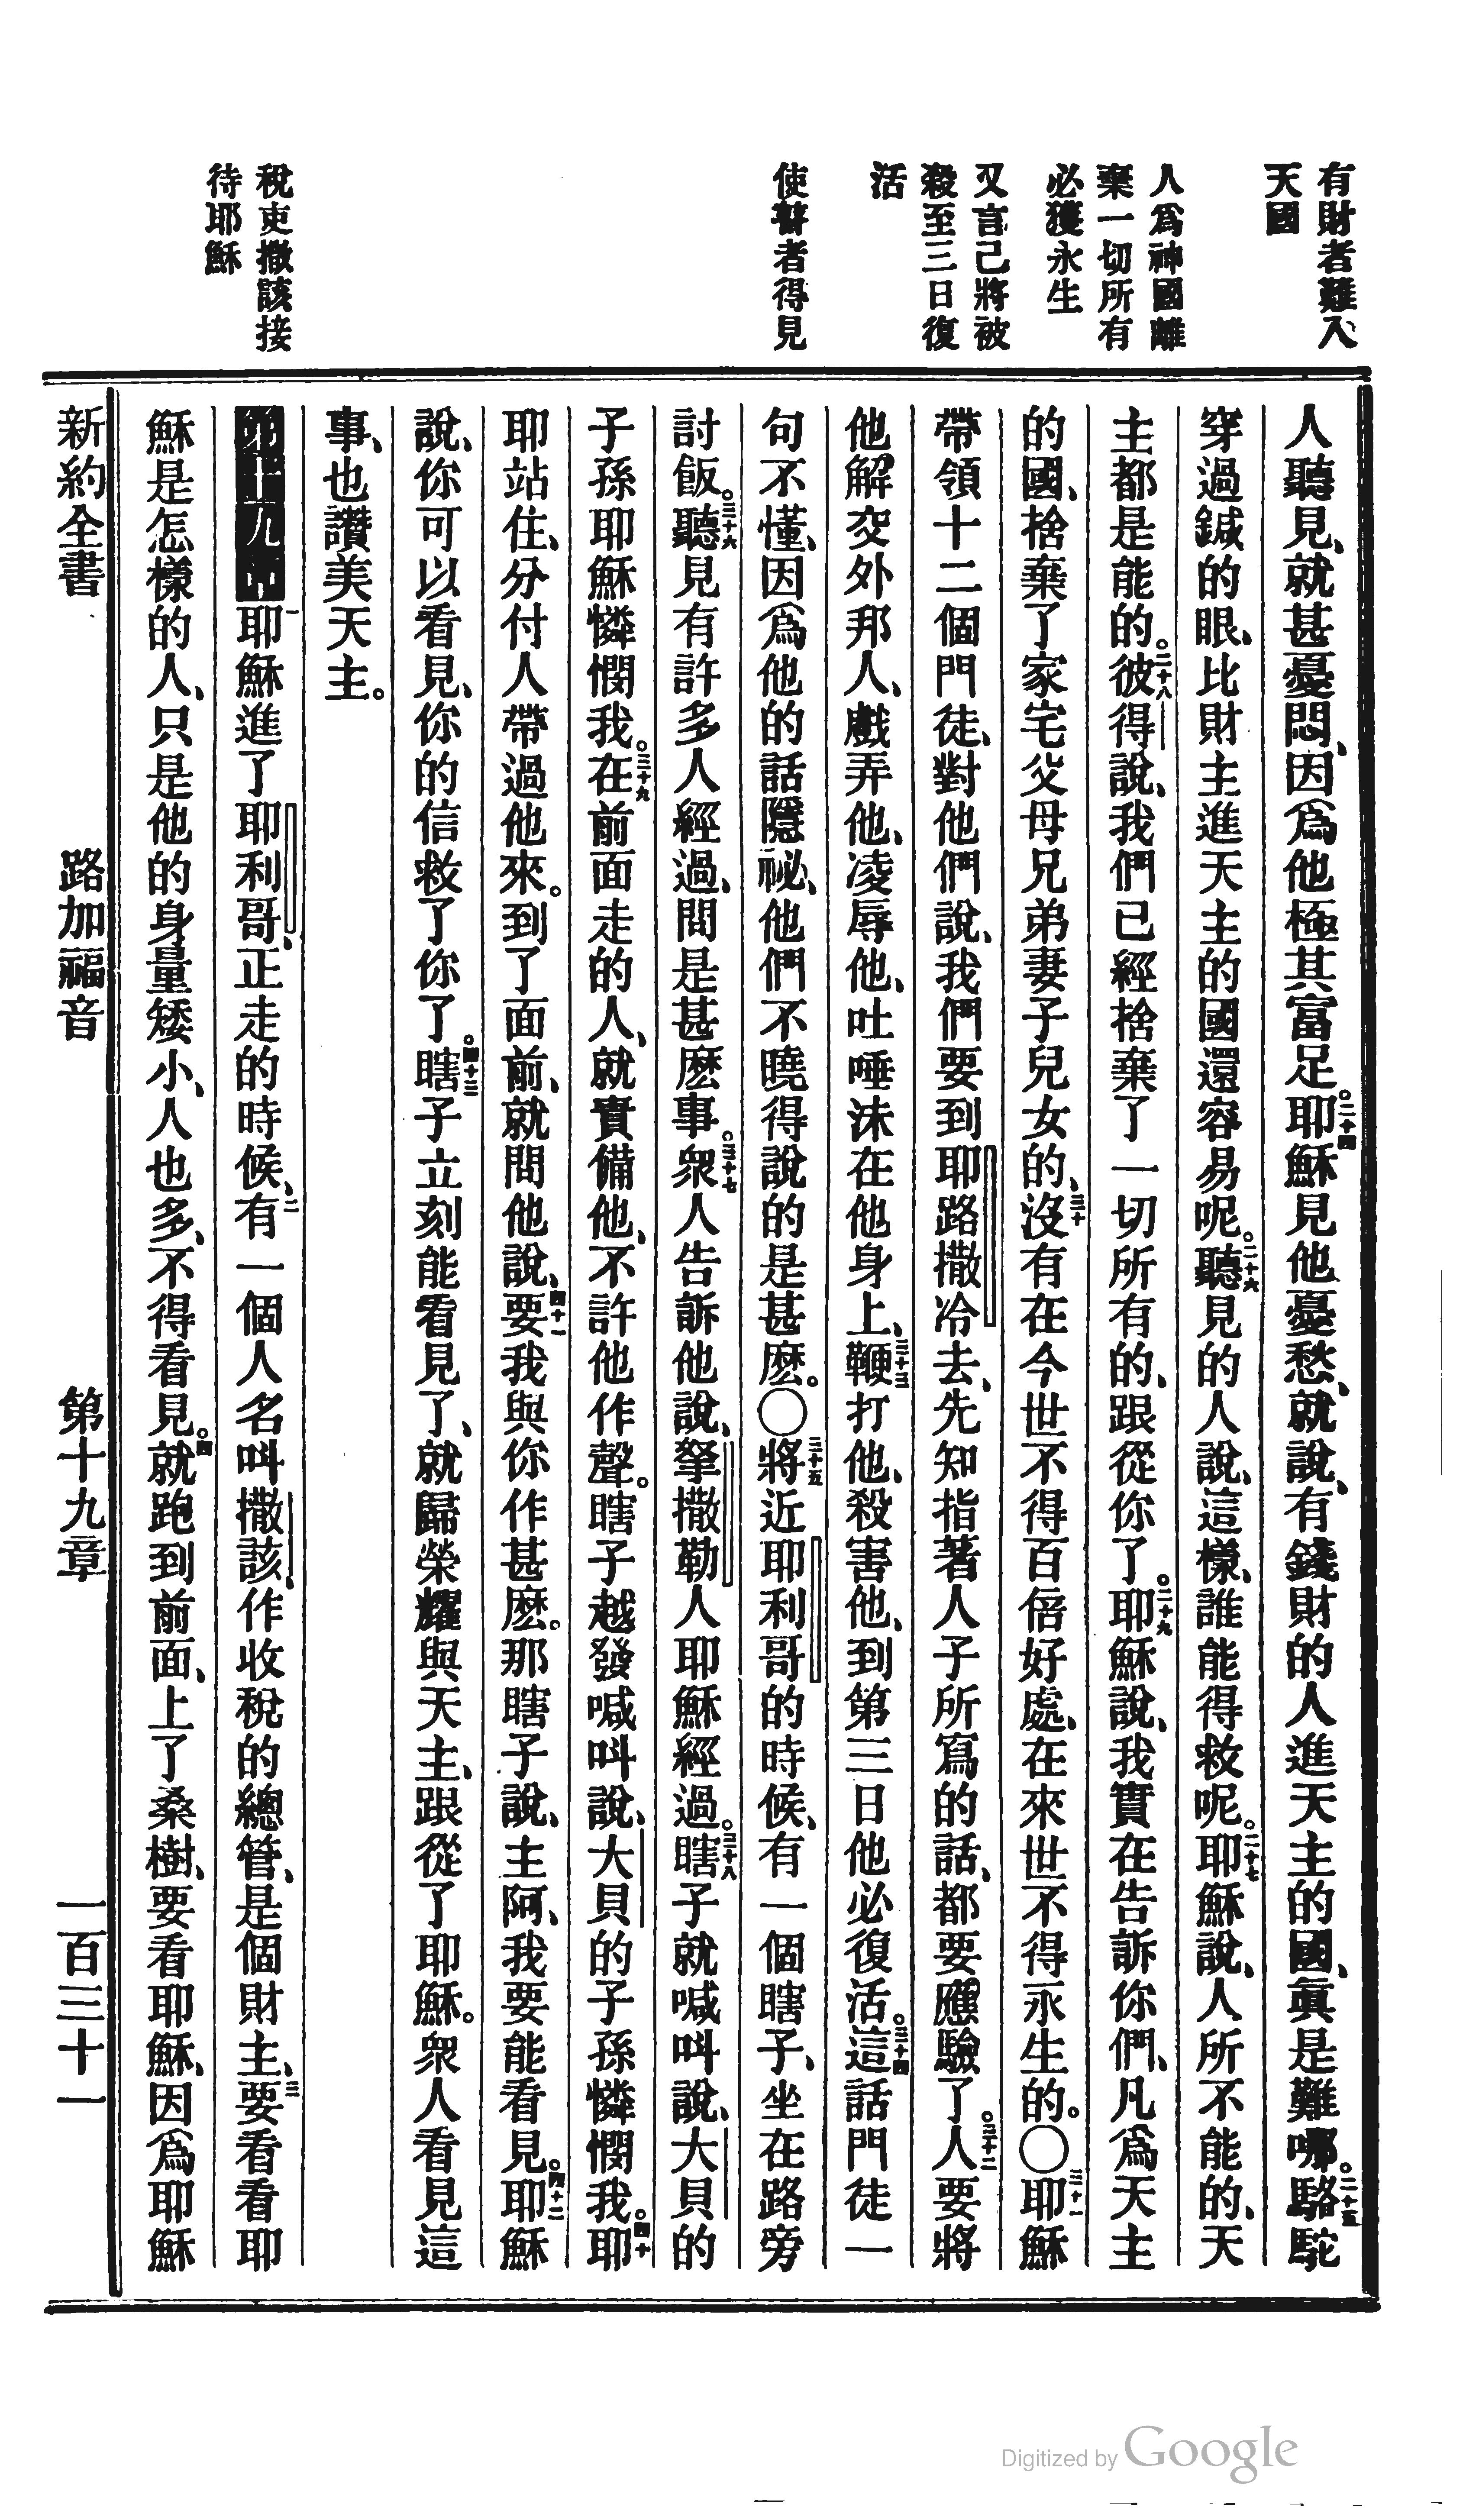 有財者難入
天國
人爲神國離
棄一切所有
必獲永生
又言己將被
殺至三日復
活
使瞽者得見
稅吏撒該接
待耶穌
人聽見、就甚憂悶、因爲他極其富足。二十四耶穌見他憂愁、就說、有錢財的人進天主的國、眞是難哪。二十五駱駝
穿過鍼的眼、比財主進天主的國還容易呢。二十六聽見的人說、這樣、誰能得救呢。二十七耶穌說、人所不能的、天
主都是能的。二十八彼得說、我們已經捨棄了一切所有的、跟從你了。二十九耶穌說、我實在告訴你們、凡爲天主
的國、捨棄了家宅父母兄弟妻子兒女的、三十沒有在今世不得百倍好處、在來世不得永生的。〇三十一耶穌
帶領十二個門徒、對他們說、我們要到耶路撒冷去、先知指著人子所寫的話、都要應驗了。三十二人要將
他解交外邦人、戲弄他、凌辱他、吐唾沫在他身上、三十三鞭打他、殺害他、到第三日他必復活。三十四這話門徒一
句不懂、因爲他的話隱祕、他們不曉得說的是甚麽。〇三十五將近耶利哥的時候、有一個瞎子、坐在路旁
討飯。三十六聽見有許多人經過、問是甚麽事。三十七衆人告訴他說、拏撒勒人耶穌經過。三十八瞎子就喊叫說、大貝的
子孫耶穌憐憫我。三十九在前面走的人、就責備他、不許他作聲。瞎子越發喊叫說、大貝的子孫憐憫我。四十耶
耶站住、分付人帶過他來。到了面前、就問他說、四十一要我與你作甚麽。那瞎子說、主阿、我要能看見。四十二耶穌
說、你可以看見、你的信救了你了。四十三瞎子立刻能看見了、就歸榮耀與天主、跟從了耶穌。衆人看見這
事、也讚美天主。
第十九章一耶穌進了耶利哥、正走的時候、二有一個人名叫撒該、作收稅的總管、是個財主、三要看看耶
穌是怎樣的人、只是他的身量矮小、人也多、不得看見。四就跑到前面、上了桑樹、要看耶穌、因爲耶穌
新約全書 路加福音 第十九章 一百三十一
Digitized by Google